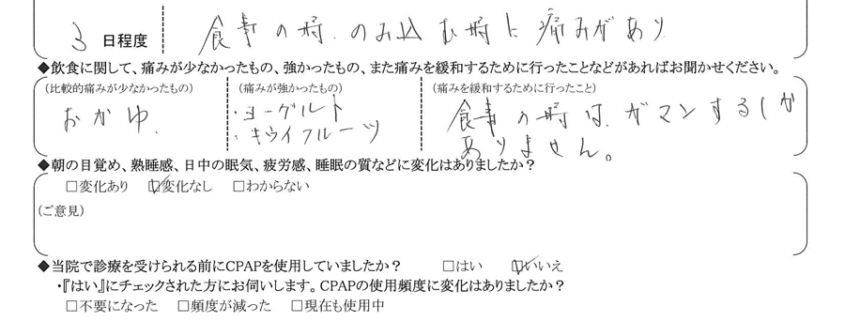 3 日程度 食事の時、のみ込む時に痛みがあり
◆飲食に関して、痛みが少なかったもの、強かったもの、また痛みを緩和するために行ったことなどがあればお聞かせください。
(比較的痛みが少なかったもの) (痛みが強かったもの) (痛みを緩和するために行ったこと)
おかゆ. ・ヨーグルト 食事の時は、ガマンするしか
・キウイフルーツ ありません。
◆朝の目覚め、熟睡感、日中の眠気、疲労感、睡眠の質などに変化はありましたか?
□変化あり ☑変化なし □わからない
(ご意見)
◆当院で診療を受けられる前にCPAPを使用していましたか? □はい ☑いいえ
・『はい』にチェックされた方にお伺いします。CPAPの使用頻度に変化はありましたか?
□不要になった □頻度が減った □現在も使用中